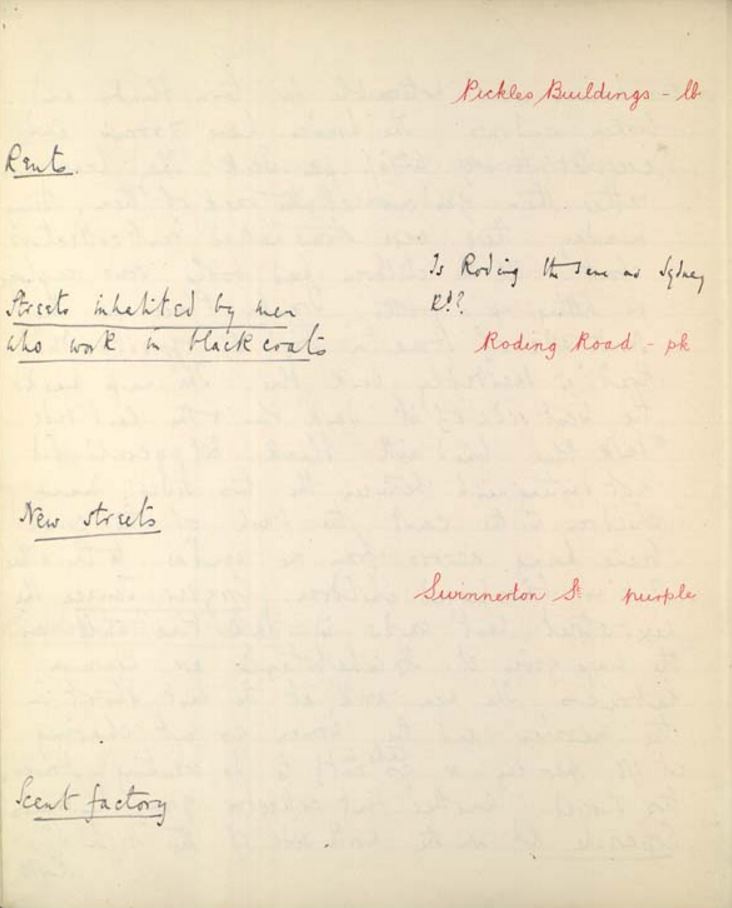 Pickles Buildings - lb.
Rents.
Is Roding the same as Sydney
Rd?
Streets inhabited by men
who work in black coats
Roding Road - pk
New streets
Swinnerton St purple
Scent factory